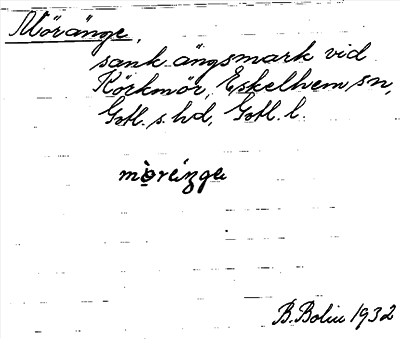 Möränge,
sank ängsmark vid
Körkmör, Eskelhem sn,
Gotl. s. hd, Gotl. l.
B. Bolin 1932